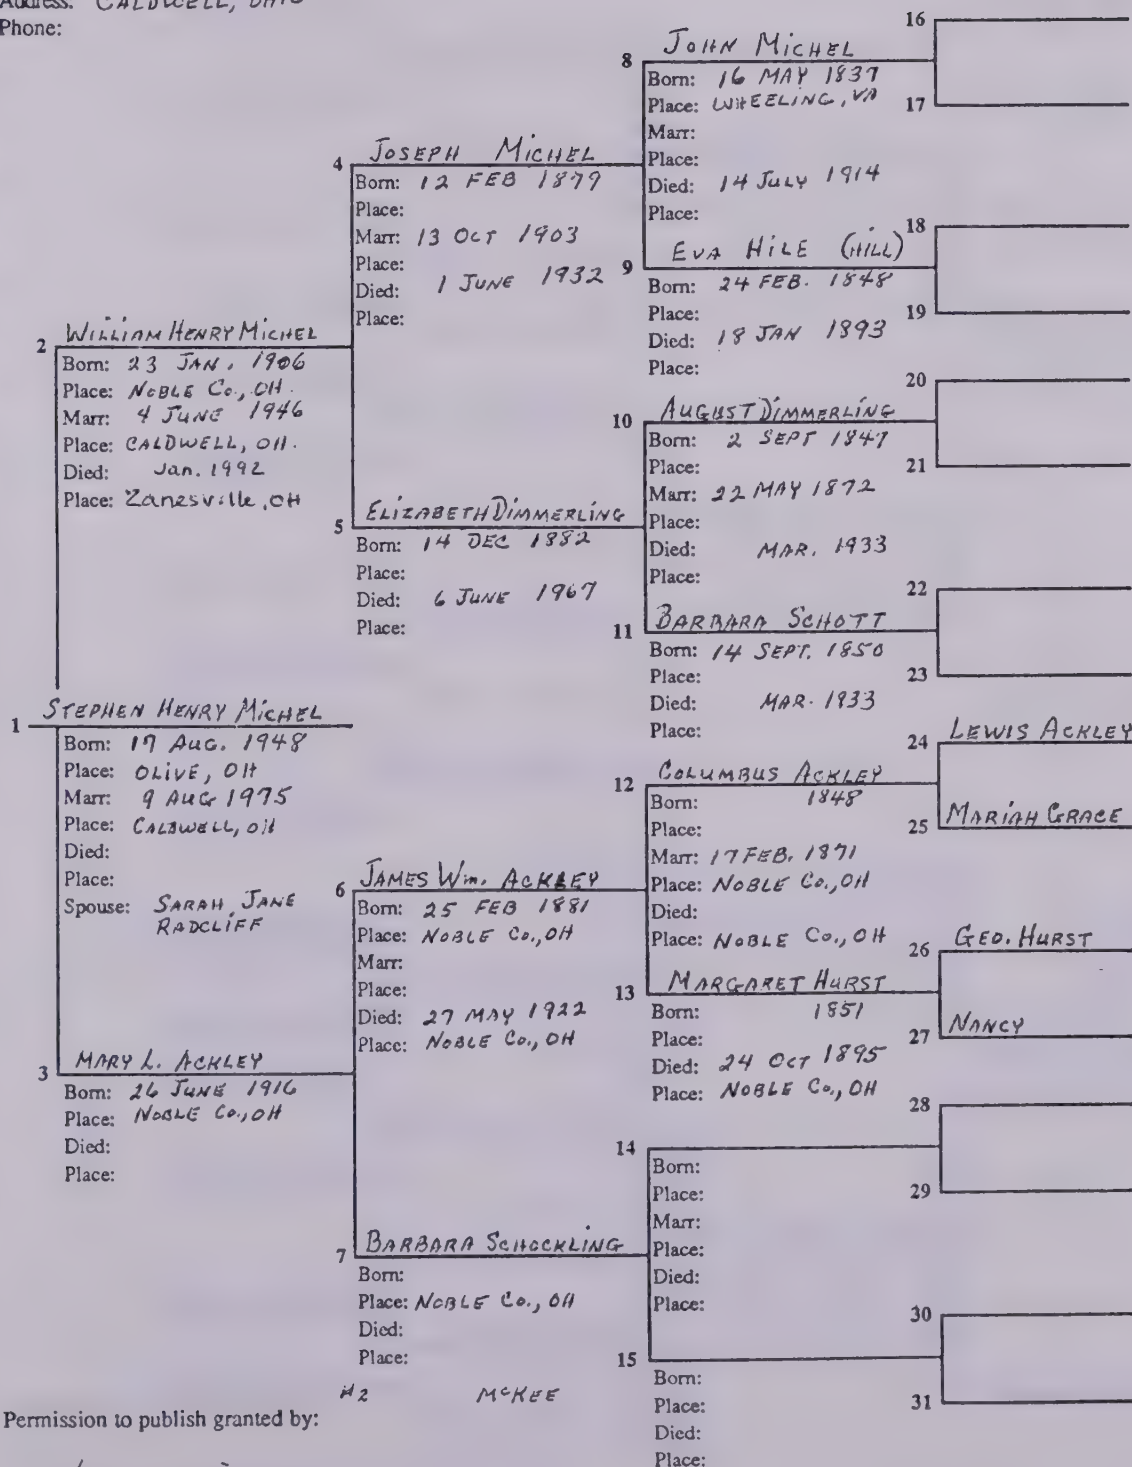 Address: CALDWELL, OHIO
Phone:
1 STEPHEN HENRY MICHEL
Born: 17 AUG. 1948
Place: OLIVE, OH
Marr: 9 AUG 1975
Place: CALDWELL, OH
Died:
Place:
Spouse: SARAH JANE
RADCLIFF
2 WILLIAM HENRY MICHEL
Born: 23 JAN. 1906
Place: NOBLE Co., OH.
Marr: 4 JUNE 1946
Place: CALDWELL, OH.
Died: Jan. 1992
Place: Zanesville, OH
3 MARY L. ACKLEY
Born: 26 JUNE 1916
Place: NOBLE Co., OH
Died:
Place:
4 JOSEPH MICHEL
Born: 12 FEB 1879
Place:
Marr: 13 OCT 1903
Place:
Died: 1 JUNE 1932
Place:
5 ELIZABETH DIMMERLING
Born: 14 DEC 1882
Place:
Died: 6 JUNE 1967
Place:
6 JAMES Wm. ACKLEY
Born: 25 FEB 1881
Place: NOBLE Co., OH
Marr:
Place:
Died: 27 MAY 1922
Place: NOBLE Co., OH
7 BARBARA SCHOCKLING
Born:
Place: NOBLE Co., OH
Died:
Place:
#2 McKEE
8 JOHN MICHEL
Born: 16 MAY 1837
Place: WHEELING, VA
Marr:
Place:
Died: 14 JULY 1914
Place:
9 EVA HILE (HILL)
Born: 24 FEB. 1848
Place:
Died: 18 JAN 1893
Place:
10 AUGUST DIMMERLING
Born: 2 SEPT 1847
Place:
Marr: 22 MAY 1872
Place:
Died: MAR. 1933
Place:
11 BARBARA SCHOTT
Born: 14 SEPT. 1850
Place:
Died: MAR. 1933
Place:
12 COLUMBUS ACKLEY
Born: 1848
Place:
Marr: 17 FEB. 1871
Place: NOBLE Co., OH
Died:
Place: NOBLE Co., OH
13 MARGARET HURST
Born: 1851
Place:
Died: 24 OCT 1895
Place: NOBLE Co., OH
14
Born:
Place:
Marr:
Place:
Died:
Place:
15
Born:
Place:
Died:
Place:
16
17
18
19
20
21
22
23
24 LEWIS ACKLEY
25 MARIAH GRACE
26 GEO. HURST
27 NANCY
28
29
30
31
Permission to publish granted by: